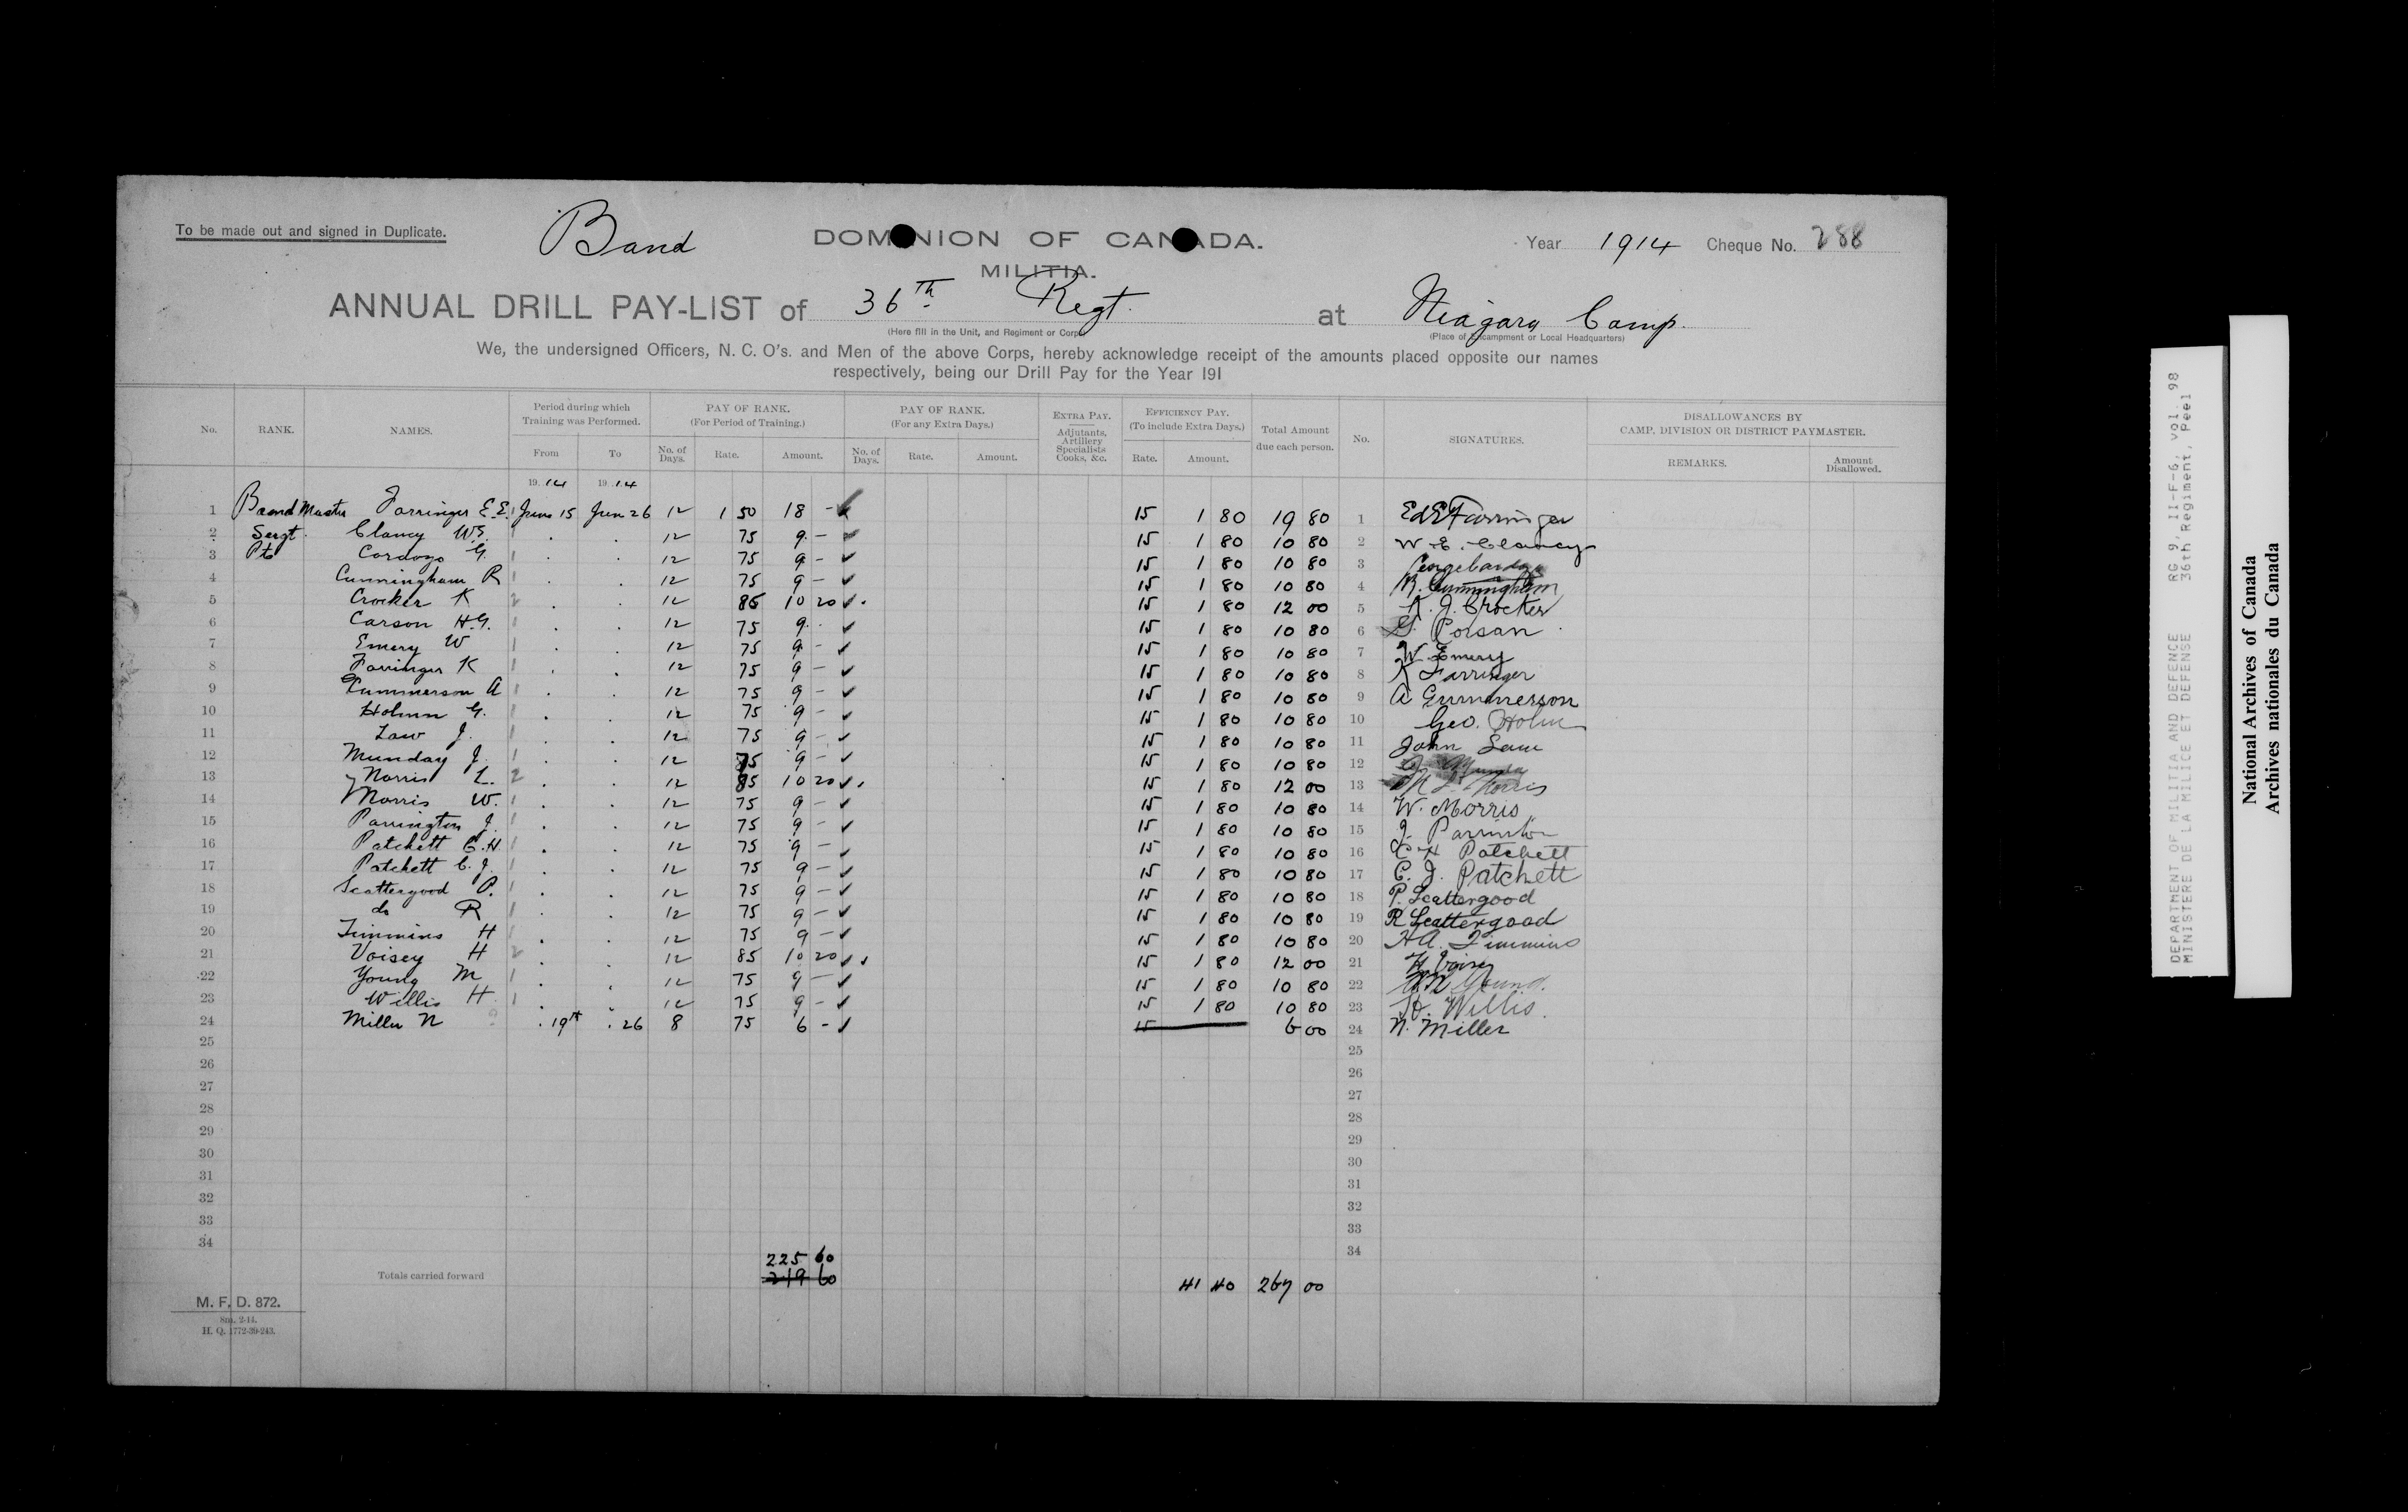 To be made out and signed in Duplicate.
Band
DOMINION OF CANADA.
Year 1914 Cheque No. 288
MILITIA.
ANNUAL DRILL PAY-LIST of 36th Regt. at Niagara Camp.
(Here fill in the Unit, and Regiment or Corps) (Place of Encampment or Local Headquarters)
We, the undersigned Officers, N. C. O's. and Men of the above Corps, hereby acknowledge receipt of the amounts placed opposite our names
respectively, being our Drill Pay for the Year 191
No. RANK. NAMES. Period during which Training was Performed. From To PAY OF RANK. (For Period of Training.) No. of Days. Rate. Amount. PAY OF RANK. (For any Extra Days.) No. of Days. Rate. Amount. EXTRA PAY. Adjutants, Artillery Specialists Cooks, &c. EFFICIENCY PAY. (To include Extra Days.) Rate. Amount. Total Amount due each person. No. SIGNATURES. DISALLOWANCES BY CAMP, DIVISION OR DISTRICT PAYMASTER. REMARKS. Amount Disallowed.
19 14 19 14
1 Band Master Farringer E.E. 1 June 15 Jun 26 12 1 50 18 - ✓ 15 1 80 19 80 1 Ed E Farringer
2 Sergt. Clancy W.E. 1 . . 12 75 9 - ✓ 15 1 80 10 80 2 W. E. Clancy
3 Pte Cordogo G. 1 . . 12 75 9 - ✓ 15 1 80 10 80 3
4 Cunningham R 1 . . 12 75 9 - ✓ 15 1 80 10 80 4 R. Cunningham
5 Crocker K 2 . . 12 85 10 20 ✓ . 15 1 80 12 00 5 K. J. Crocker
6 Carson H.G. 1 . . 12 75 9 . ✓ 15 1 80 10 80 6
7 Emery W 1 . . 12 75 9 - ✓ 15 1 80 10 80 7 W Emery
8 Farringer K 1 . . 12 75 9 - ✓ 15 1 80 10 80 8 K Farringer
9 Gummerson A 1 . . 12 75 9 - ✓ 15 1 80 10 80 9 A Gummerson
10 Holmn G. 1 . . 12 75 9 - ✓ 15 1 80 10 80 10 Geo. Holm
11 Law J. 1 . . 12 75 9 - ✓ 15 1 80 10 80 11 John Law
12 Munday J. 1 . . 12 75 9 - ✓ 15 1 80 10 80 12
13 Norris L. 2 . . 12 85 10 20 ✓ . 15 1 80 12 00 13 L. Norris
14 Morris W. 1 . . 12 75 9 - ✓ 15 1 80 10 80 14 W. Morris
15 Parrington J. 1 . . 12 75 9 - ✓ 15 1 80 10 80 15 J. Parrinton
16 Patchett C.H. 1 . . 12 75 9 - ✓ 15 1 80 10 80 16 C H Patchett
17 Patchett C.J. 1 . . 12 75 9 - ✓ 15 1 80 10 80 17 C. J. Patchett
18 Scattergood P. 1 . . 12 75 9 - ✓ 15 1 80 10 80 18 P. Scattergood
19 do R 1 . . 12 75 9 - ✓ 15 1 80 10 80 19 R Scattergood
20 Timmins H 1 . . 12 75 9 - ✓ 15 1 80 10 80 20 H A. Timmins
21 Voisey H 2 . . 12 85 10 20 ✓ . 15 1 80 12 00 21 H Voisey
22 Young M 1 . . 12 75 9 - ✓ 15 1 80 10 80 22 M Young.
23 Willis H. 1 . . 12 75 9 - ✓ 15 1 80 10 80 23 H. Willis.
24 Miller N . 19th . 26 8 75 6 - ✓ 15 6 00 24 N. Miller
25 25
26 26
27 27
28 28
29 29
30 30
31 31
32 32
33 33
34 34
225 60
Totals carried forward 219 60 41 40 267 00
M. F. D. 872.
8m. 2-14.
H. Q. 1772-39-243.
DEPARTMENT OF MILITIA AND DEFENCE RG 9, II-F-6, vol. 98
MINISTERE DE LA MILICE ET DEFENSE 36th Regiment, Peel
National Archives of Canada
Archives nationales du Canada